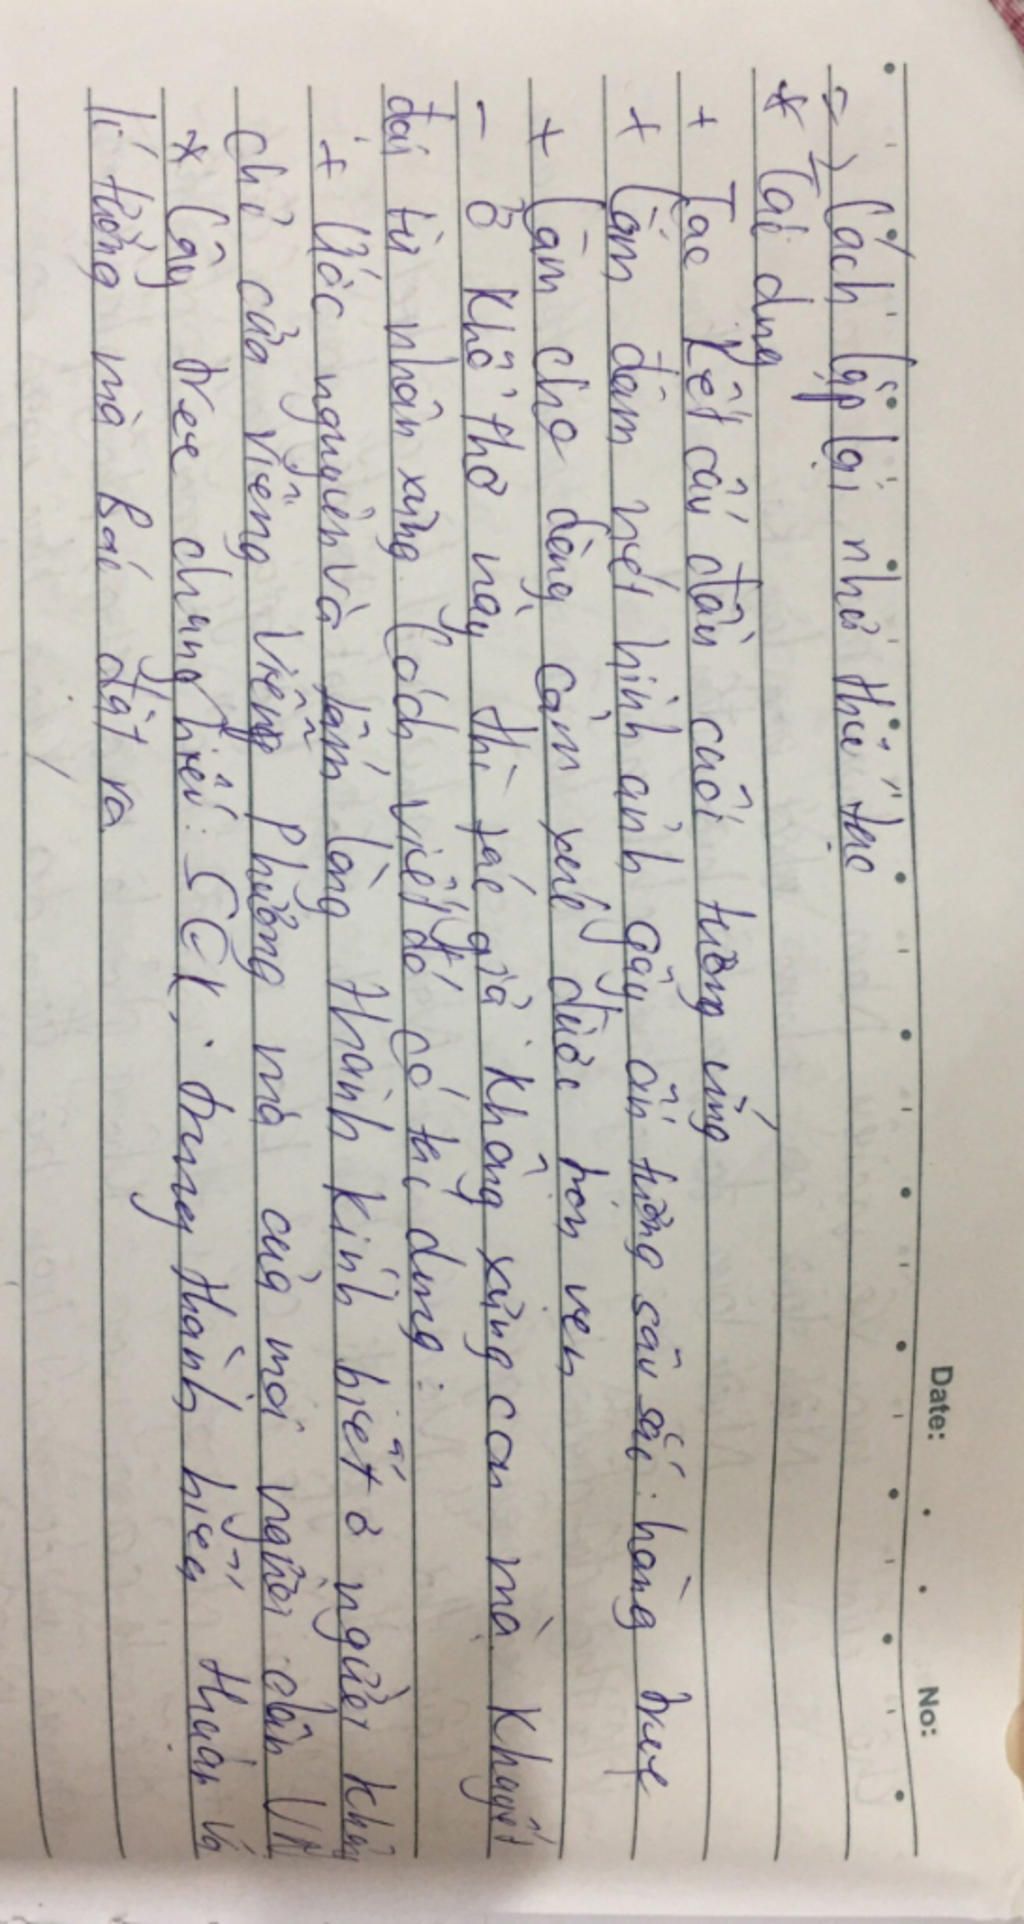 Date: No:
=> Cách lặp lại như thế
* Tái dụng
+ Tạc kết cấu đầu cuối tương ứng
+ Làm đâm nét hình ảnh gây ấn tượng sâu sắc: hàng tre
+ Làm cho dòng cảm xúc được trọn vẹn
- Ở khổ thơ này thì tác giả không xưng con mà khuyết
đại từ nhân xưng Cách viết đó có tác dụng:
+ Ước nguyện và tấm lòng thành kính biết ở người
chỉ của riêng Viễn Phương mà của mọi người dân VN
* Cây tre trung hiếu: trung thành, hiếu thuận và
lí tưởng mà Bác đặt ra